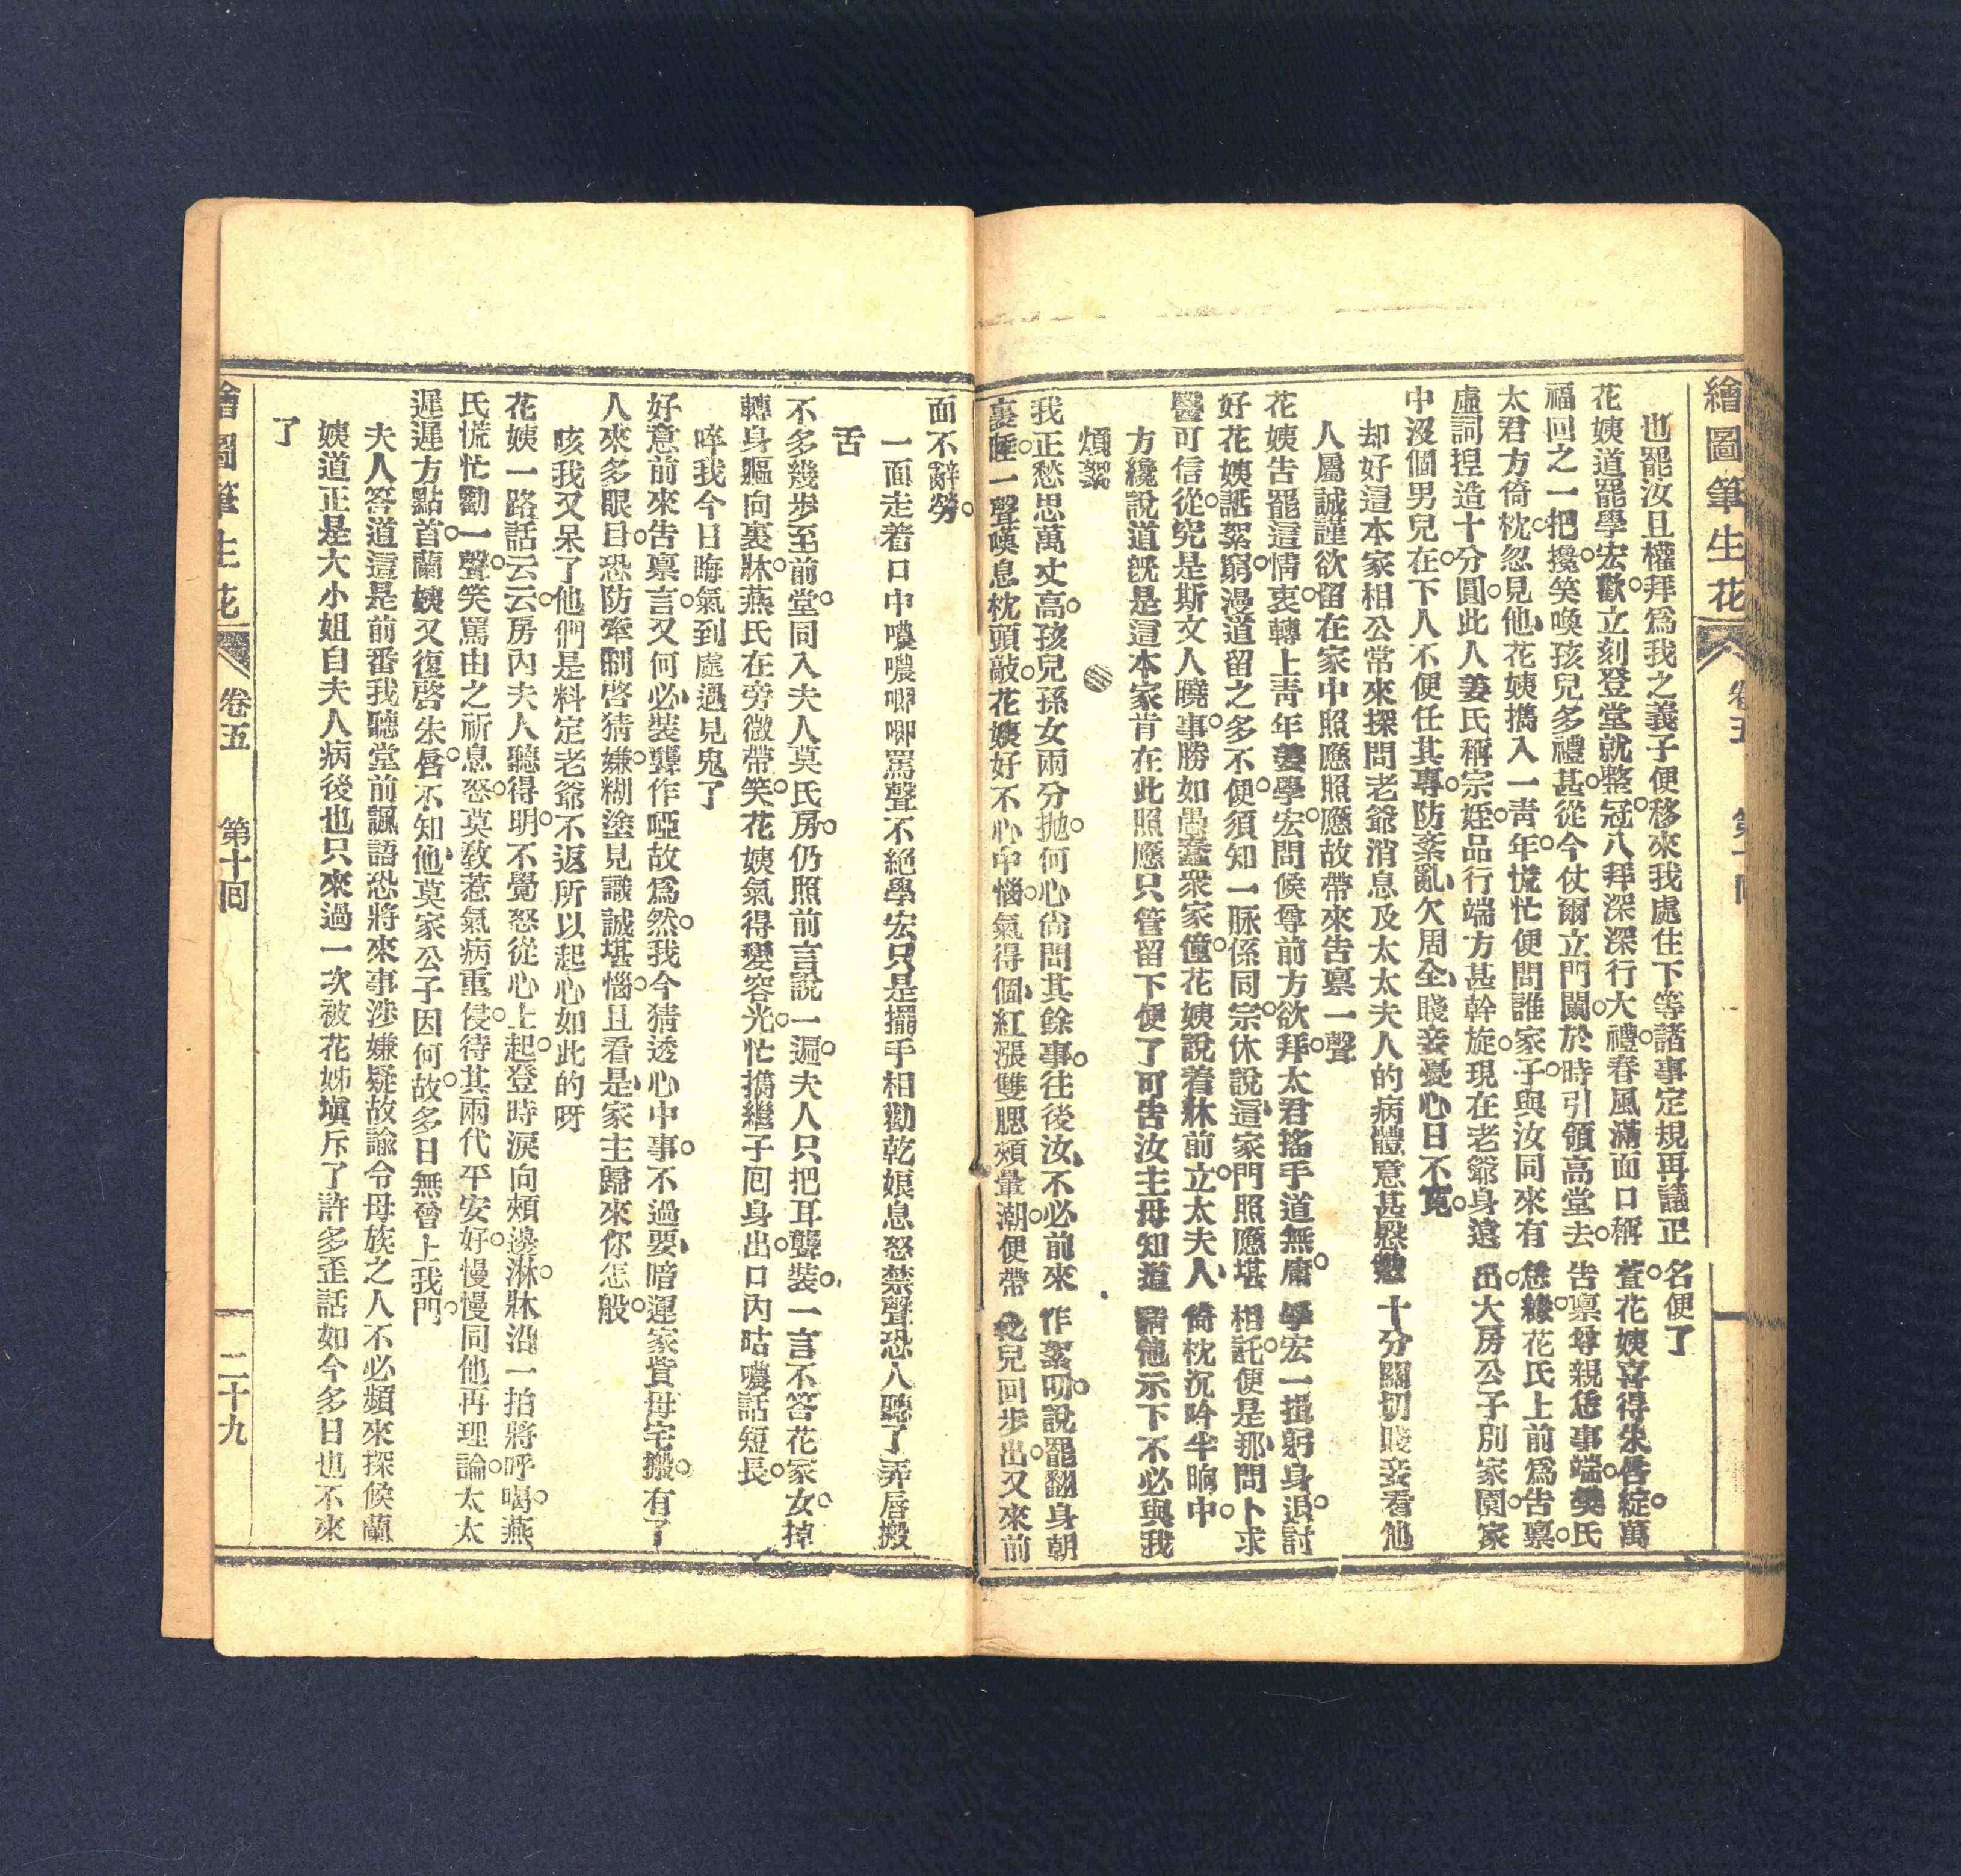 繪圖筆生花 卷五 第十回
也罷汝且權拜爲我之義子便移來我處住下等諸事定規再議正名便了
花姨道罷學宏歡立刻登堂就整冠八拜深深行大禮春風滿面口稱萱花姨喜得朱唇綻萬
福回之一把攙笑喚孩兒多禮甚從今仗爾立門闌於時引領高堂去告禀尊親恁事端樊氏
太君方倚枕忽見他花姨攜入一靑年慌忙便問誰家子與汝同來有恁緣花氏上前爲告禀
虛詞揑造十分圓此人姜氏稱宗姪品行端方甚幹旋現在老爺身遠出大房公子別家園家
中沒個男兒在下人不便任其專防紊亂欠周全賤妾憂心日不寬
却好這本家相公常來探問老爺消息及太太夫人的病體意甚慇懃十分關切賤妾看他
人屬誠謹欲留在家中照應照應故帶來告禀一聲
花姨告罷這情衷轉上靑年姜學宏問候尊前方欲拜太君搖手道無庸學宏一揖躬身退討
好花姨話絮窮漫道留之多不便須知一脉係同宗休說這家門照應堪相託便是那問卜求
醫可信從究是斯文人曉事勝如愚蠢衆家僮花姨說着牀前立太夫人倚枕沉吟半晌中
方纔說道旣是這本家肯在此照應只管留下便了可告汝主母知道請他示下不必與我
煩絮
我正愁思萬丈高孩兒孫女兩分拋何心尙問其餘事往後汝不必前來作絮叨說罷翻身朝
裏睡一聲嘆息枕頭敲花姨好不心中惱氣得個紅漲雙腮頰暈潮便帶乾兒回步出又來前
面不辭勞
一面走着口中噥噥唧唧罵聲不絕學宏只是搖手相勸乾娘息怒禁聲恐人聽了弄唇搬
舌
不多幾步至前堂同入夫人莫氏房仍照前言說一遍夫人只把耳聾裝一言不答花家女掉
轉身軀向裏牀燕氏在旁微帶笑花姨氣得變容光忙攜繼子囘身出口內咕噥話短長
啐我今日晦氣到處遇見鬼了
好意前來告禀言又何必裝聾作啞故爲然我今猜透心中事不過要暗運家貲母宅搬有了
人來多眼目恐防牽制啓猜嫌糊塗見識誠堪惱且看是家主歸來你怎般
咳我又呆了他們是料定老爺不返所以起心如此的呀
花姨一路話云云房內夫人聽得明不覺怒從心上起登時淚向頰邊淋牀沿一拍將呼喝燕
氏慌忙勸一聲笑罵由之祈息怒莫敎惹氣病重侵待其兩代平安好慢慢同他再理論太太
遲遲方點首蘭姨又復啓朱唇不知他莫家公子因何故多日無曾上我門
夫人答道這是前番我聽堂前諷語恐將來事涉嫌疑故諭令母族之人不必頻來探候蘭
姨道正是大小姐自夫人病後也只來過一次被花姊塡斥了許多歪話如今多日也不來
了
繪圖筆生花 卷五 第十回 二十九